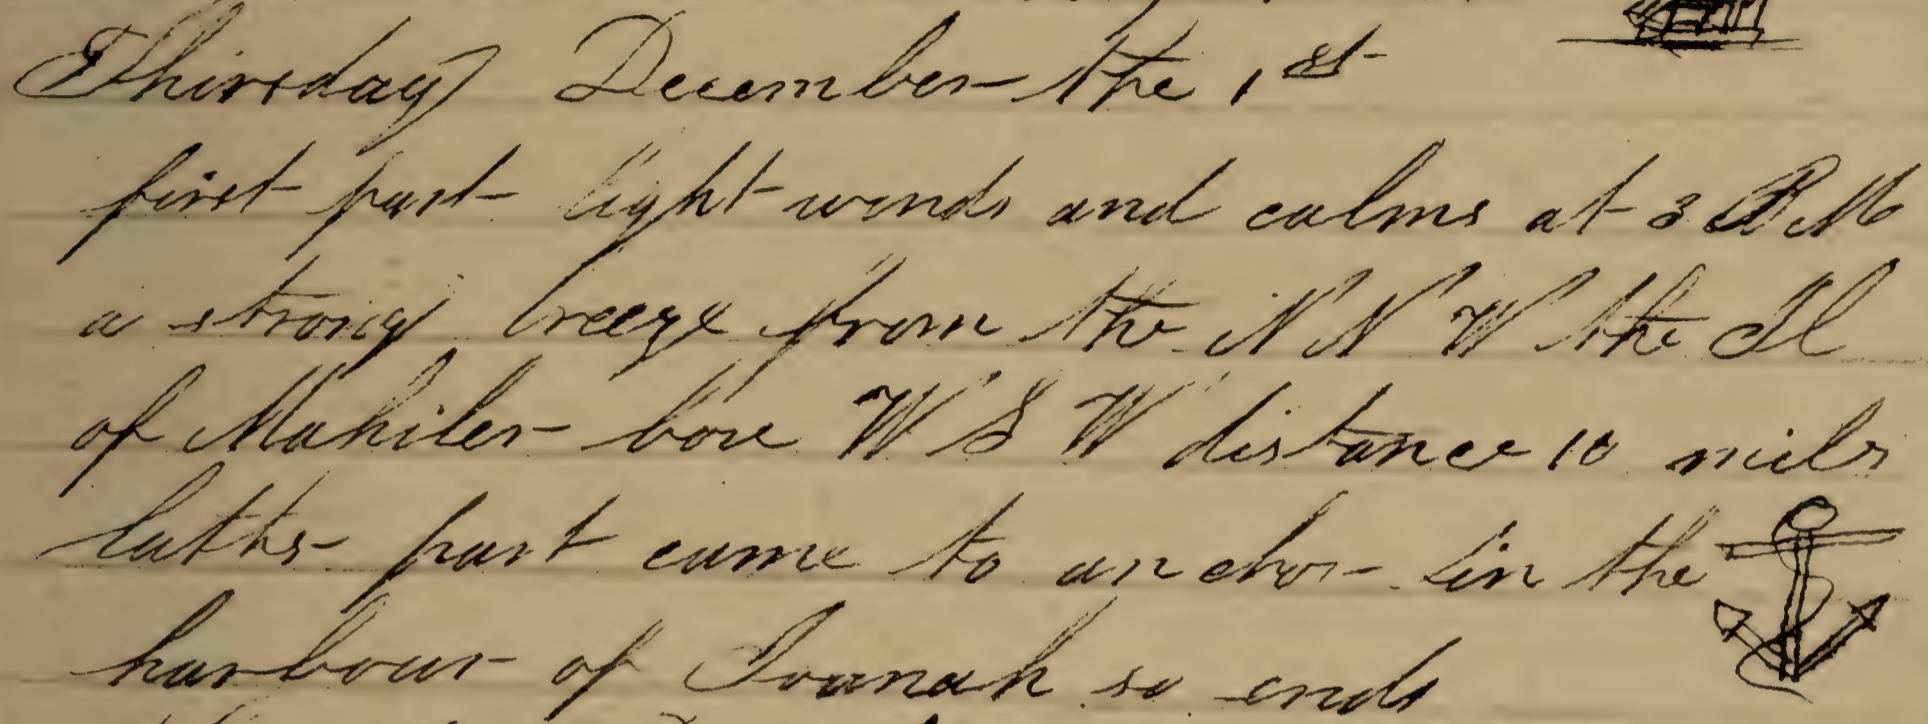 Thirsday December the 1st
first part light winds and calms at 3 PM
a strong breeze from the N N W the Il
of Mahiler bore W S W distance 10 miles
latter part came to anchor in the
harbour of Joanah so ends